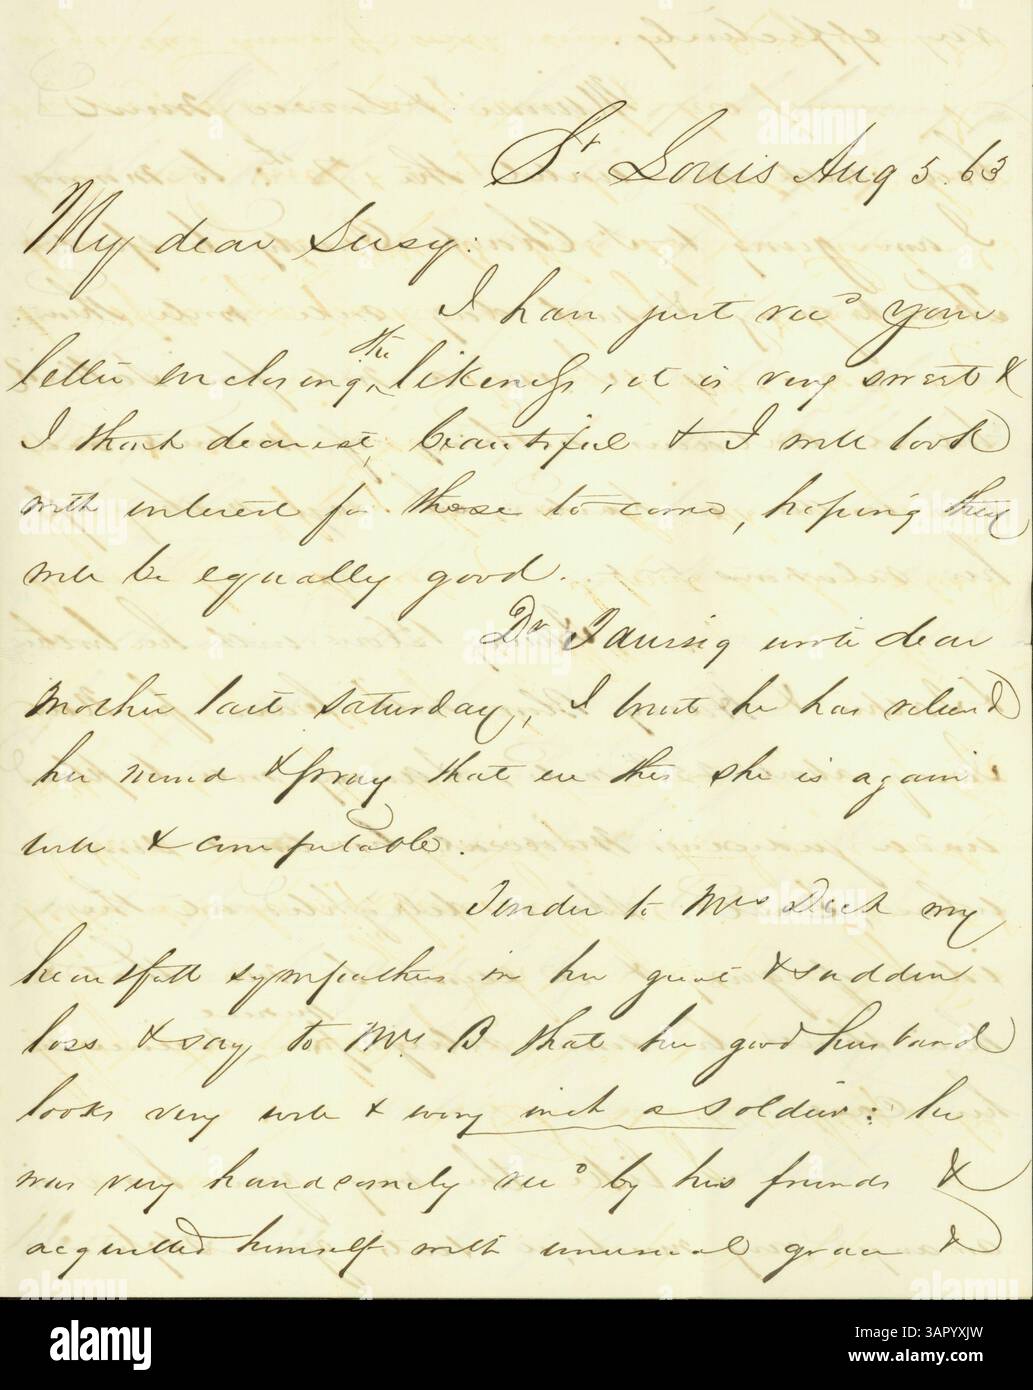 St Louis Aug 5. 63
My dear Susy:
I have just recd your
letter enclosing the likeness, it is very sweet &
I think dearest, beautiful & I will look
with interest for those to come, hoping they
will be equally good.
Dr Taussig wrote dear
Mother last Saturday, I trust he has relieved
her mind & pray that ere this she is again
well & comfortable.
Tender to Mrs Dick my
heartfelt sympathies in her great & sudden
loss & say to Mrs B that her good husband
looks very well & every inch a soldier: he
was very handsomely recd by his friends &
acquitted himself with unusual grace &
alamy
Image ID: 3APYXJW
www.alamy.com